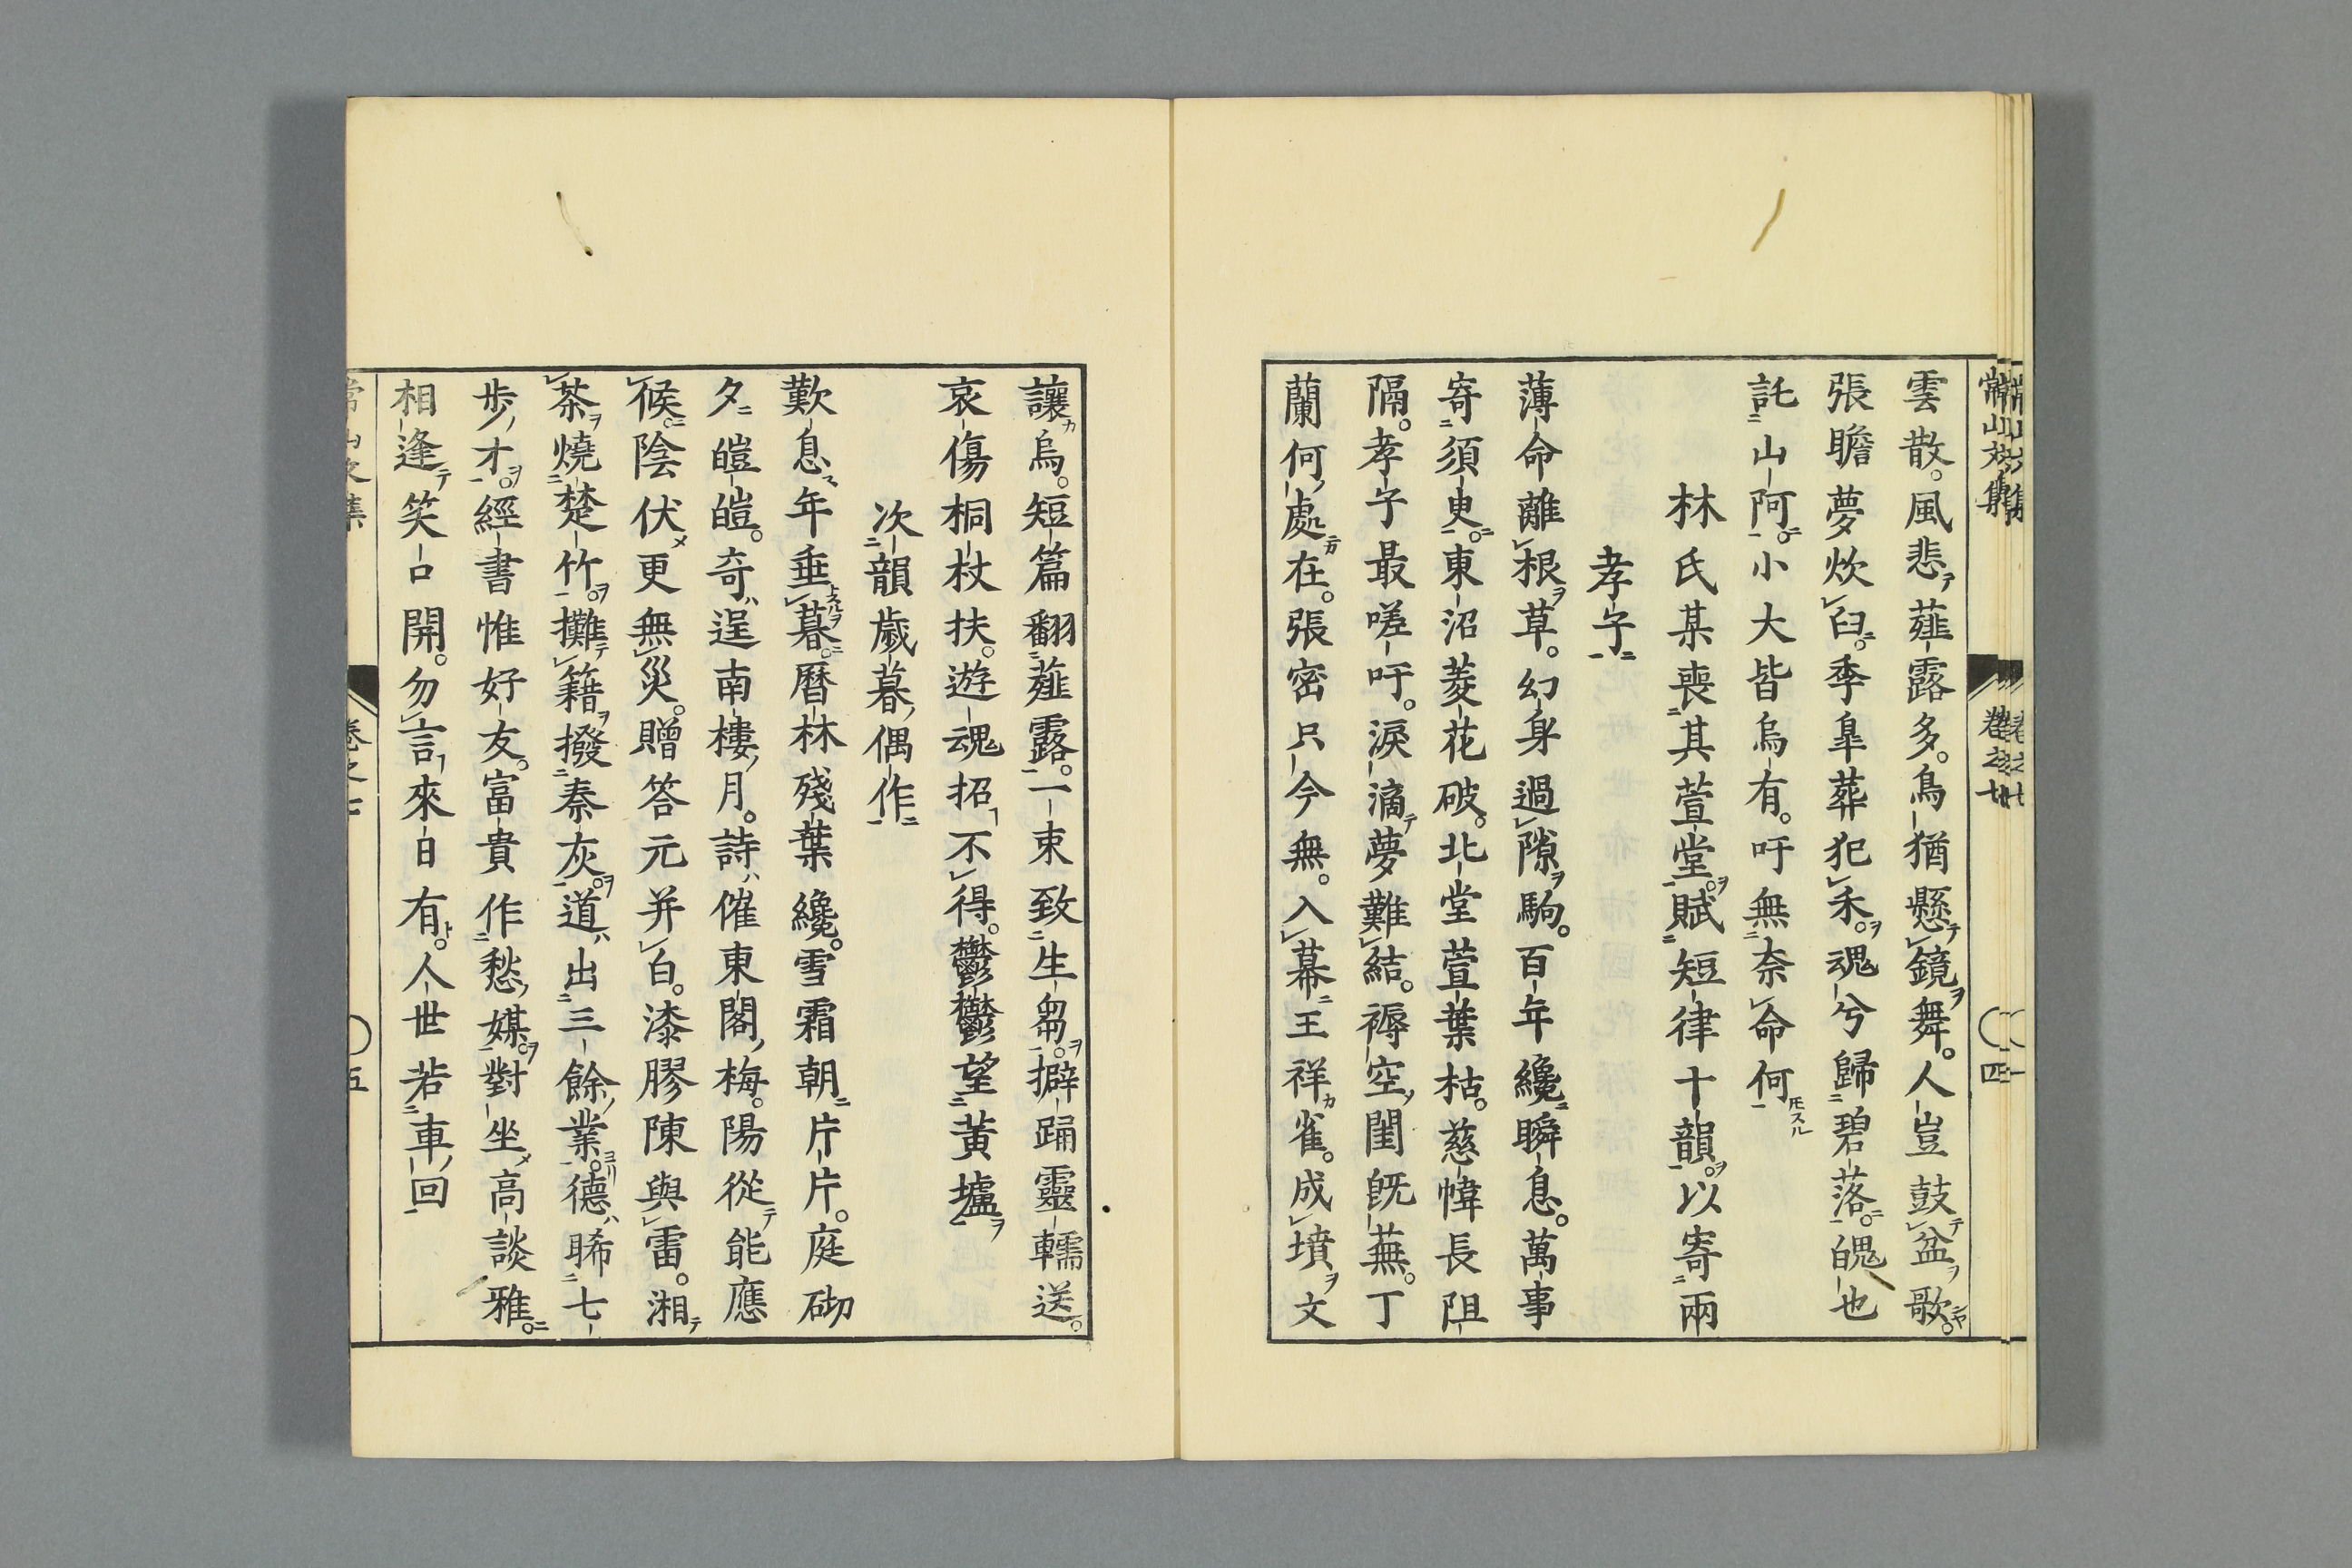 雲散。風悲薤露多。鳥猶懸鏡舞。人豈鼓盆歌。
張瞻夢炊臼。季皐葬犯禾。魂兮歸碧落。魄也
託山阿。小大皆烏有。吁無奈命何
林氏某喪其萱堂。賦短律十韻。以寄兩
孝子
薄命離根草。幻身過隙駒。百年纔瞬息。萬事
寄須臾。東沼菱花破。北堂萱葉枯。慈幃長阻
隔。孝子最嗟吁。淚滴夢難結。褥空閨既蕪。丁
蘭何處在。張密只今無。入幕王祥雀。成墳文
讓烏。短篇翻薤露。一束致生芻。擗踊靈轜送。
哀傷桐杖扶。遊魂招不得。鬱鬱望黃壚
次韻歲暮偶作
歎息年垂暮。曆林殘葉纔。雪霜朝片片。庭砌
夕皚皚。奇逞南樓月。詩催東閣梅。陽從能應
候。陰伏更無災。贈答元并白。漆膠陳與雷。湘
茶燒楚竹。攤籍撥秦灰。道出三餘業。德睎七
步才。經書惟好友。富貴作愁媒。對坐高談雅。
相逢笑口開。勿言來日有。人世若車回
常山文集
卷之七
四
五